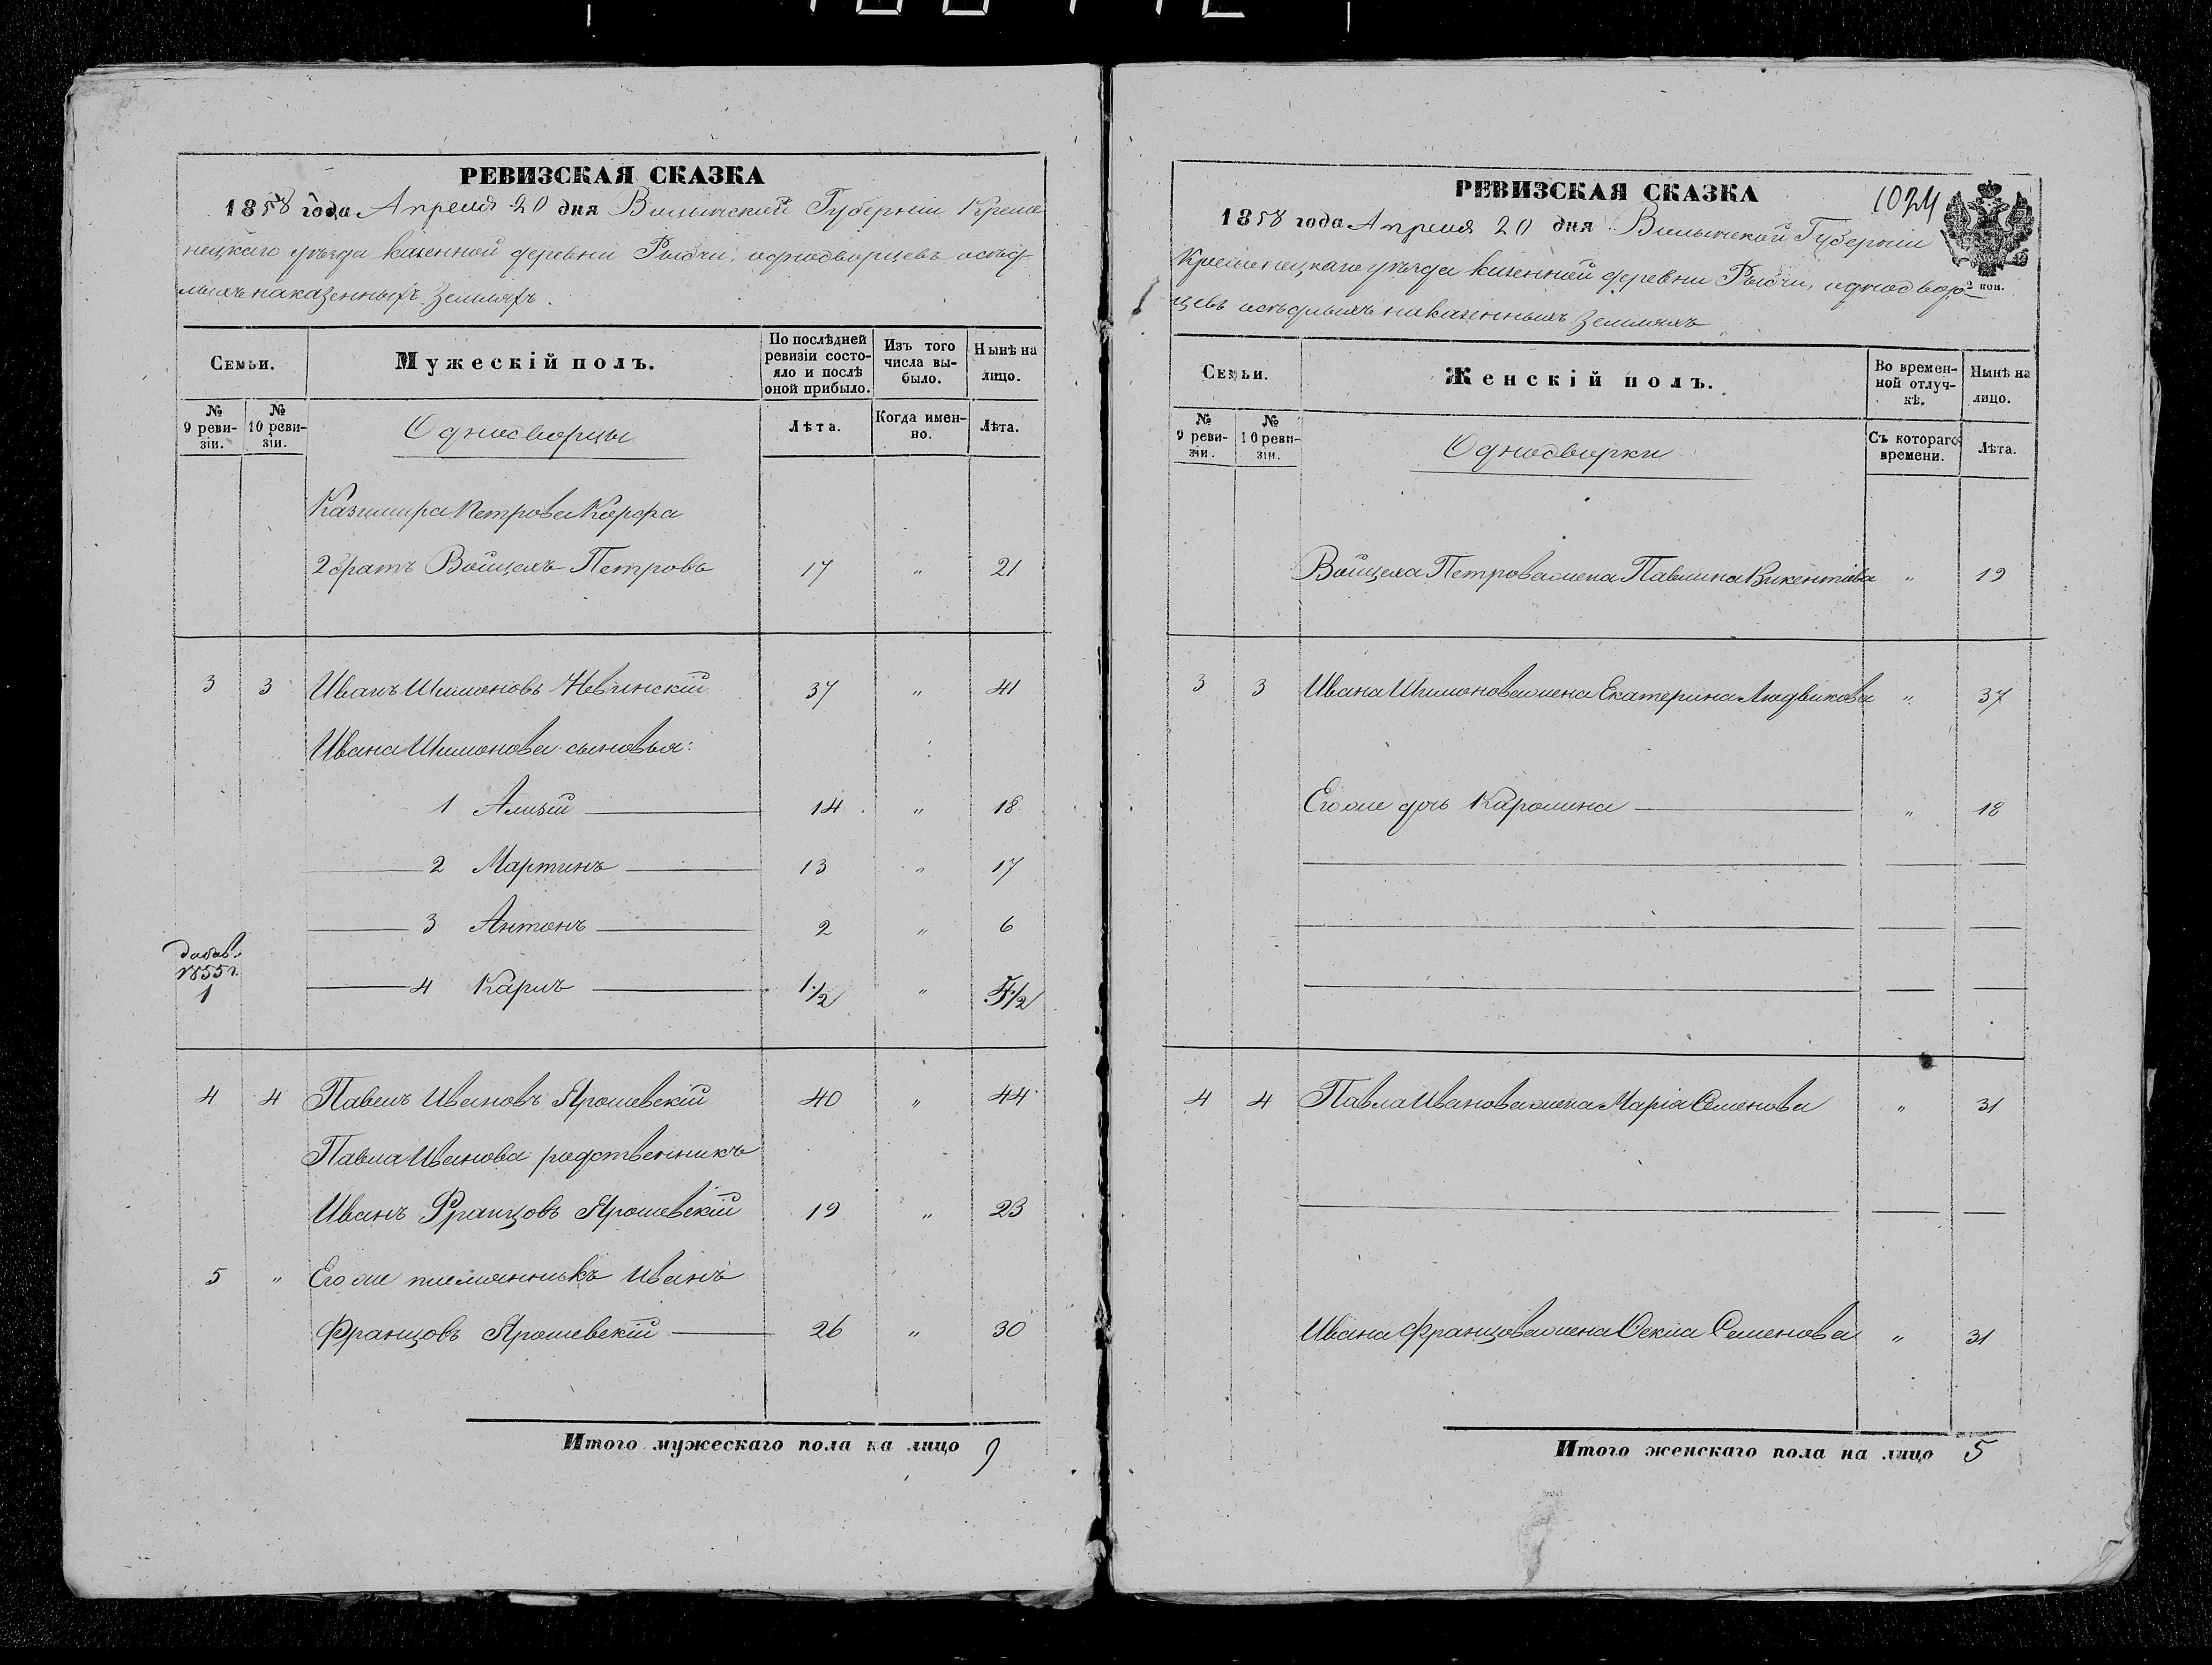 РЕВИЗСКАЯ СКАЗКА
1858 года Апреля 20 дня Волынской Губерніи Креме
нецкаго уѣзда казенной деревни Рыдчи, однодворцевъ осѣд
лыхъ на казенныхъ земляхъ.
Семьи.
Мужескій полъ.
По послѣдней ревизіи состо-яло и послѣ оной прибыло.
Изъ того числа вы-было.
Нынѣ на лицо.
№ 9 реви-зіи.
№ 10 реви-зіи.
Однодворцы
Лѣта.
Когда имен-но.
Лѣта.
Казимира Петрова Корфа
2 братъ Войцехъ Петровъ 17 " 21
3 3 Иванъ Шимоновъ Невинскій 37 " 41
Ивана Шимонова сыновья:
1 Ализій 14 " 18
2 Мартинъ 13 " 17
3 Антонъ 2 " 6
добав. 1855 г. 1
4 Карлъ 1/2 "
4 4 Павелъ Ивановъ Ярошевскій 40 " 44
Павла Иванова родственникъ
Иванъ Францовъ Ярошевскій 19 " 23
5 " Его же племянникъ Иванъ
Францовъ Ярошевскій 26 " 30
Итого мужескаго пола на лицо 9
РЕВИЗСКАЯ СКАЗКА 1024
1858 года Апреля 20 дня Волынской Губерніи
Кременецкаго уѣзда казенной деревни Рыдчи, однодвор-
2 коп.
цевъ осѣдлыхъ на казенныхъ земляхъ
Семьи.
Женскій полъ.
Во времен-ной отлуч-кѣ.
Нынѣ на лицо.
№ 9 реви-зіи.
№ 10 реви-зіи.
Однодворки
Съ котораго времени.
Лѣта.
Войцеха Петрова жена Павлина Викентіева " 19
3 3 Ивана Шимонова жена Екатерина Людвикова " 37
Его же дочь Каролина " 18
4 4 Павла Иванова жена Марія Семенова " 31
Ивана Францова жена Ѳекла Семенова " 31
Итого женскаго пола на лицо 5